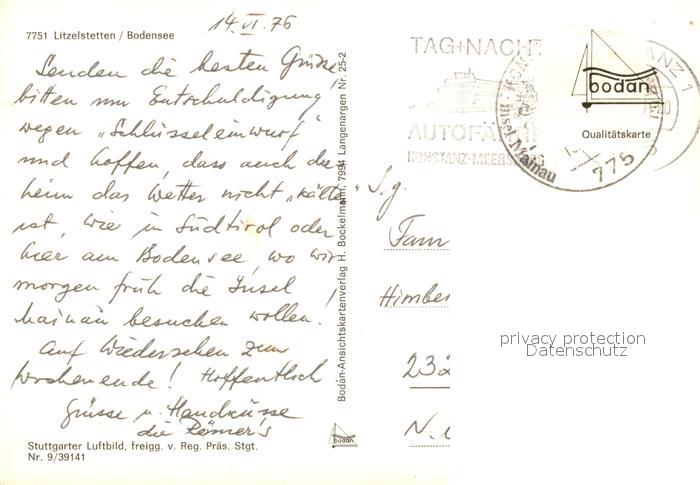 14.VI.76
7751 Litzelstetten / Bodensee
Senden die besten Grüsse,
bitten um Entschuldigung
wegen „Schlüsseleinwurf"
und hoffen, dass auch da-
heim das Wetter nicht „kälter"
ist, wie in Südtirol oder
hier am Bodensee, wo wir
morgen früh die Insel
Mainau besuchen wollen!
Auf Wiedersehen zum
Wochenende! Hoffentlich
Grüsse u. Handküsse
die Römer's
Stuttgarter Luftbild, freigg. v. Reg. Präs. Stgt.
Nr. 9/39141
Bodan-Ansichtskartenverlag H. Bockelmann, 7994 Langenargen Nr. 25-2
bodan
TAG+NACHT
AUTOFÄHRE
KONSTANZ-MEERS
NZ 1
bodan
Qualitätskarte
Insel Mainau
775
S.g.
Fam
Himbe
232
N.
privacy protection
Datenschutz